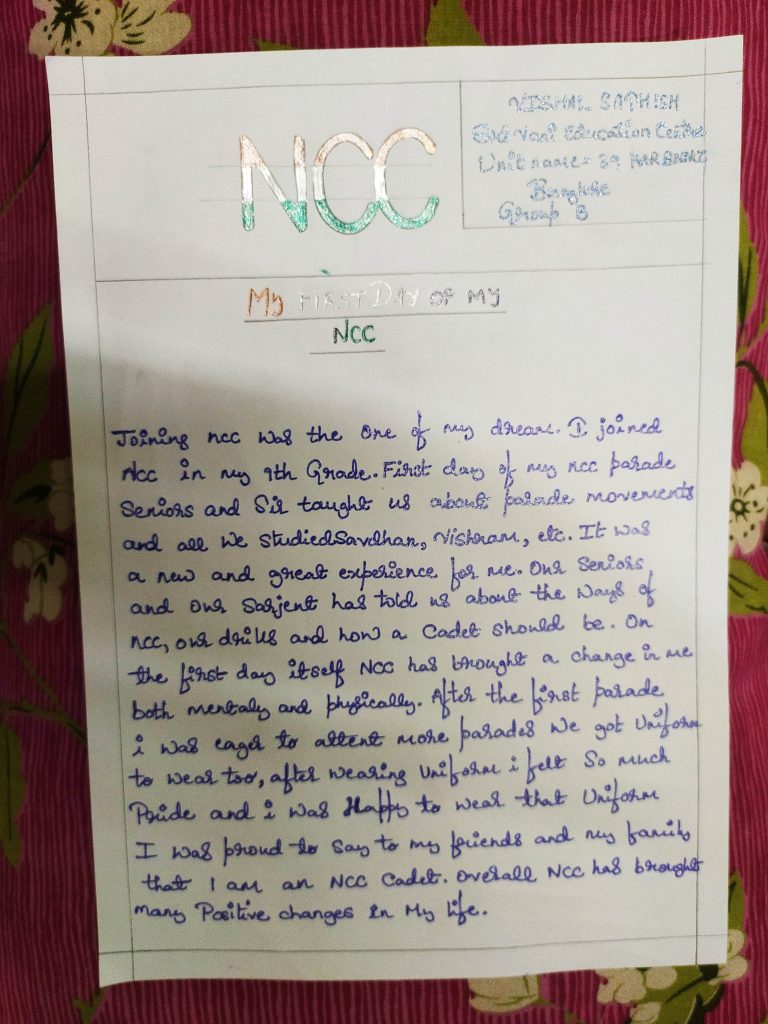 NCC
VISHAL SATHISH
Vani Education Centre
Unit name = 39
Banglore
Group B
My FIRST DAY OF MY
NCC
Joining ncc was the one of my dream. I joined
Ncc in my 9th Grade. First day of my ncc parade
Seniors and Sir taught us about parade movements
and all we studied Savdhan, Vishram, etc. It was
a new and great experience for me. Our Seniors
and our Sarjent has told us about the ways of
ncc, our drills and how a Cadet should be. On
the first day itself NCC has brought a change in me
both mentaly and physically. After the first parade
i was eager to attent more parades we got Uniform
to wear too, after wearing Uniform i felt So much
Pride and i was Happy to wear that Uniform
I was proud to Say to my friends and my family
that I am an NCC Cadet. Overall NCC has brought
many Positive changes in My life.